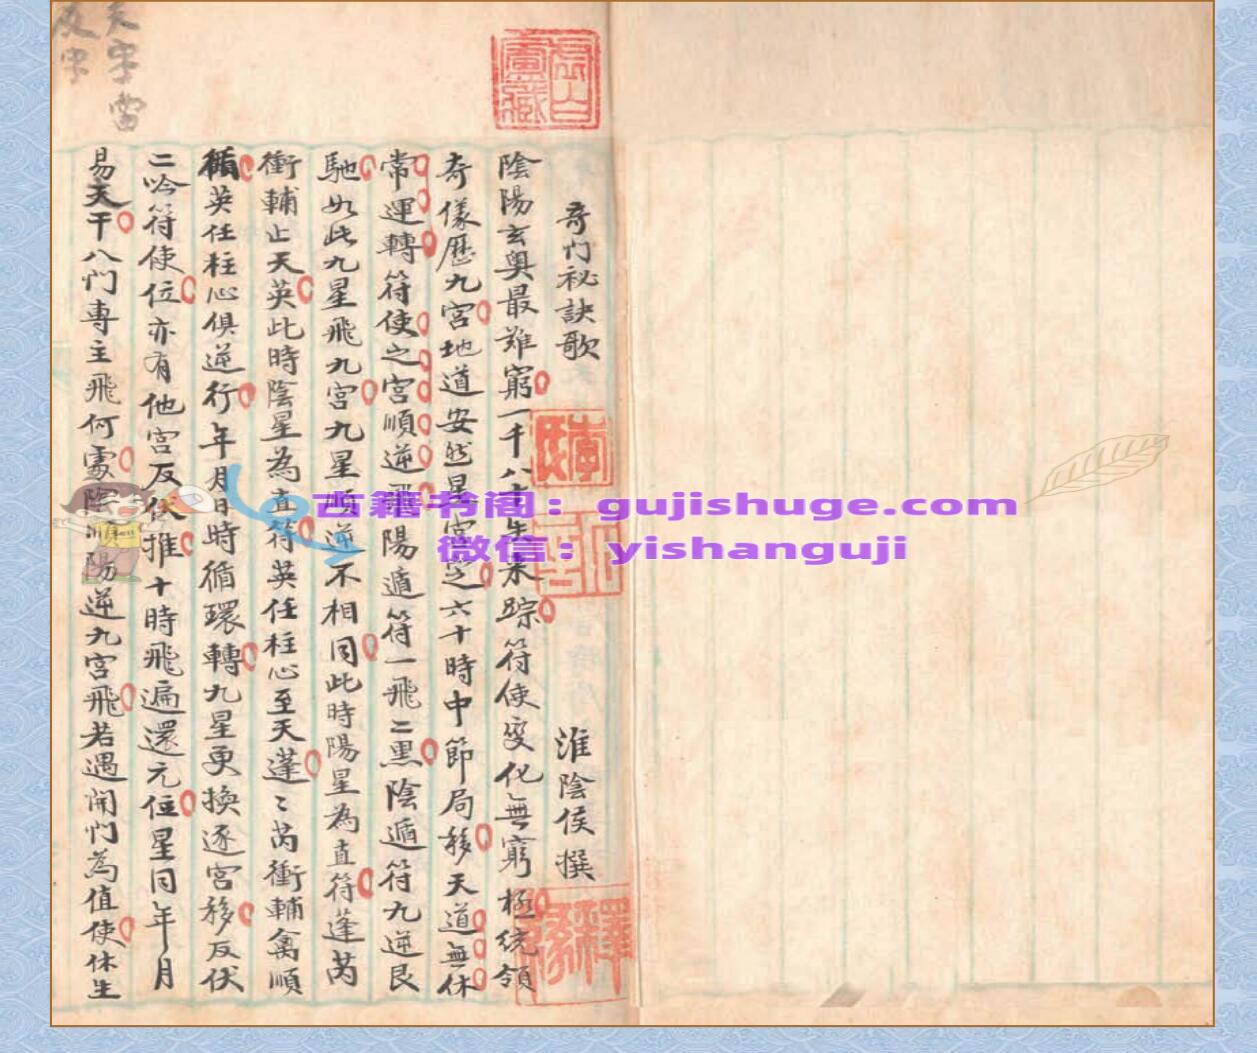 奇门祕訣歌
淮陰侯撰
陰陽玄奧最难窮一千八百失来踪符使变化無窮極統領
奇儀歷九宮地道安然星宮定六十時中節局移天道無休
常運轉符使之宮順逆飛陽遁符一飛二黒陰遁符九逆艮
馳如此九星飛九宮九星順逆不相同此時陽星為直符蓬芮
衝輔止天英此時陰星為直符英任柱心至天蓬〻芮衝輔禽順
循英任柱心俱逆行年月日時循環轉九星更換逐宮移反伏
二吟符使位亦有他宮反伏推十時飛遍還元位星同年月
易天干八门專主飛何處陰順陽逆九宮飛若遇開门為值使休生
古籍书阁：gujishuge.com
微信：yishanguji